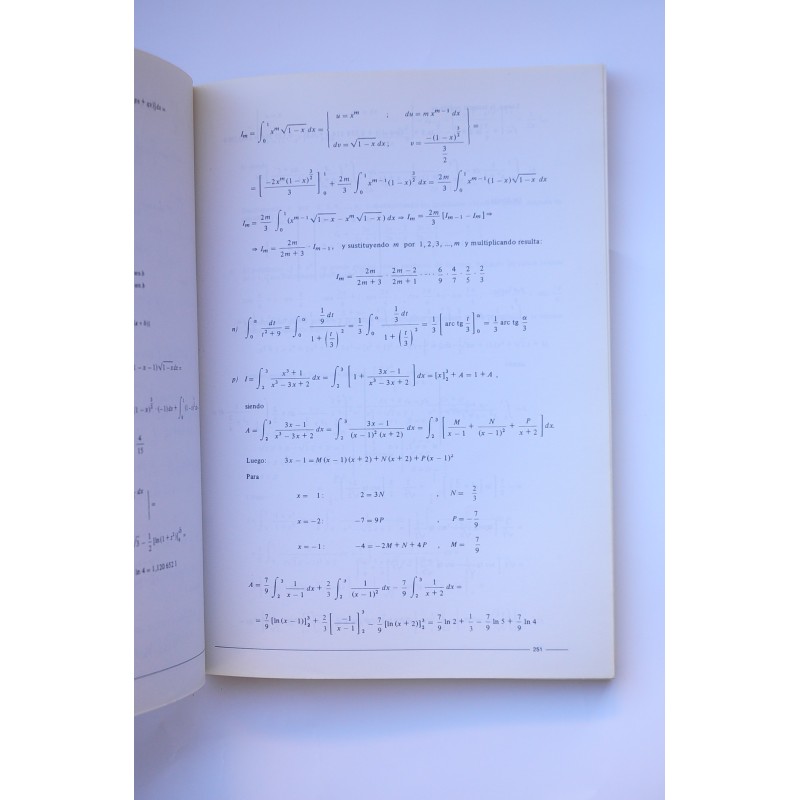 I_m = ∫_0^1 x^m √(1 − x) dx = | u = x^m ; du = m x^(m−1) dx
dv = √(1 − x) dx ; v = −(1 − x)^(3/2) / (3/2) | =
= [ −2x^m (1 − x)^(3/2) / 3 ]_0^1 + 2m/3 ∫_0^1 x^(m−1) (1 − x)^(3/2) dx = 2m/3 ∫_0^1 x^(m−1) (1 − x) √(1 − x) dx
I_m = 2m/3 ∫_0^1 (x^(m−1) √(1 − x) − x^m √(1 − x)) dx ⇒ I_m = 2m/3 [I_(m−1) − I_m] ⇒
⇒ I_m = 2m/(2m + 3) · I_(m−1), y sustituyendo m por 1, 2, 3, ..., m y multiplicando resulta:
I_m = 2m/(2m + 3) · (2m − 2)/(2m + 1) · ... · 6/9 · 4/7 · 2/5 · 2/3
n) ∫_0^α dt/(t² + 9) = ∫_0^α (1/9 dt)/(1 + (t/3)²) = 1/3 ∫_0^α (1/3 dt)/(1 + (t/3)²) = 1/3 [arc tg t/3]_0^α = 1/3 arc tg α/3
p) I = ∫_2^3 (x³ + 1)/(x³ − 3x + 2) dx = ∫_2^3 [1 + (3x − 1)/(x³ − 3x + 2)] dx = [x]_2^3 + A = 1 + A ,
siendo
A = ∫_2^3 (3x − 1)/(x³ − 3x + 2) dx = ∫_2^3 (3x − 1)/((x − 1)² (x + 2)) dx = ∫_2^3 [M/(x − 1) + N/(x − 1)² + P/(x + 2)] dx
Luego: 3x − 1 = M (x − 1) (x + 2) + N (x + 2) + P (x − 1)²
Para
x = 1: 2 = 3N , N = 2/3
x = −2: −7 = 9P , P = −7/9
x = −1: −4 = −2M + N + 4P , M = 7/9
A = 7/9 ∫_2^3 1/(x − 1) dx + 2/3 ∫_2^3 1/(x − 1)² dx − 7/9 ∫_2^3 1/(x + 2) dx =
= 7/9 [ln (x − 1)]_2^3 + 2/3 [−1/(x − 1)]_2^3 − 7/9 [ln (x + 2)]_2^3 = 7/9 ln 2 + 1/3 − 7/9 ln 5 + 7/9 ln 4
261